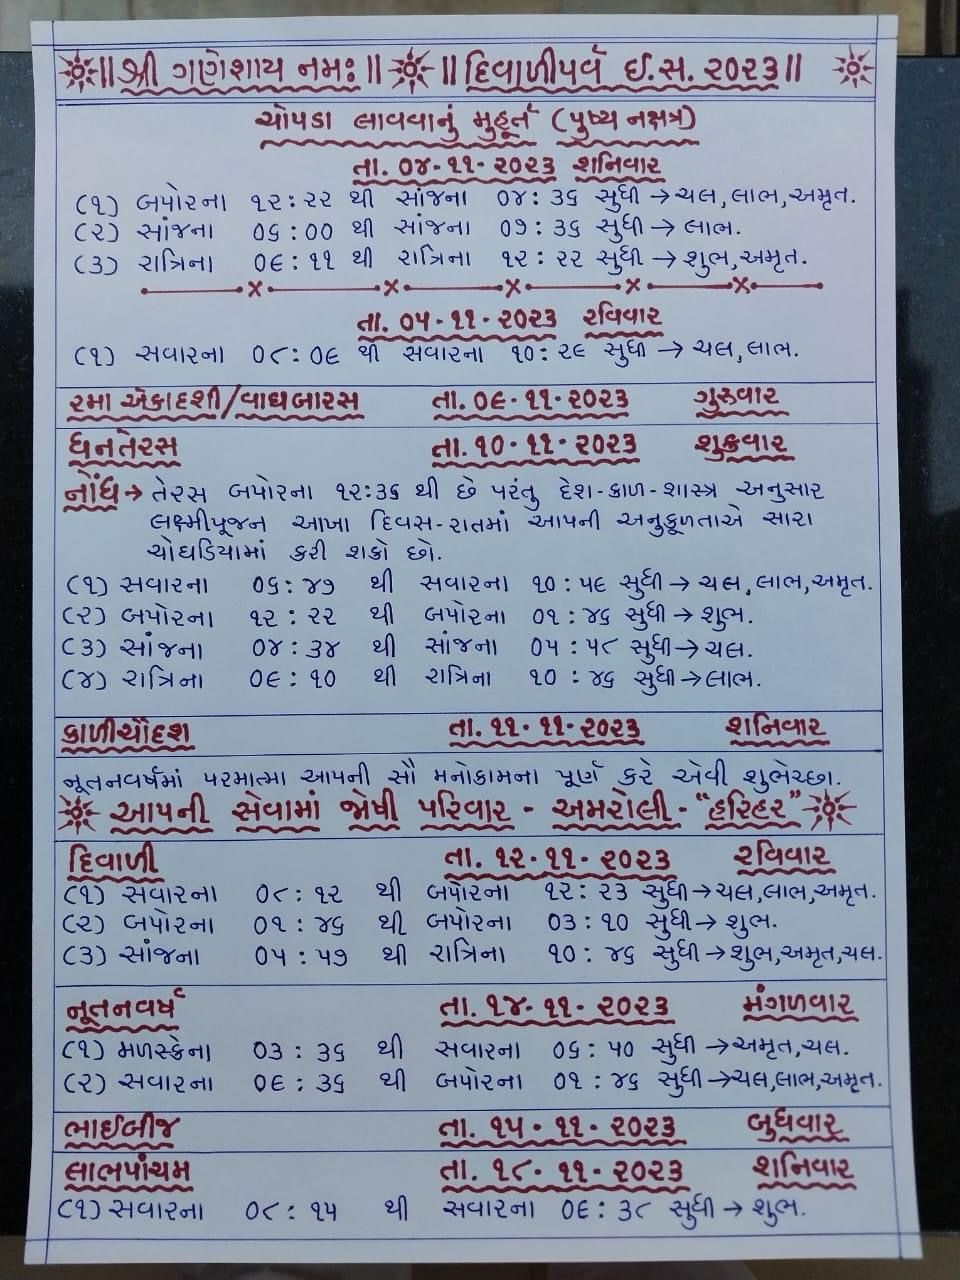 ॥ શ્રી ગણેશાય નમઃ ॥ ॥ દિવાળીપર્વ ઈ.સ. ૨૦૨૩ ॥
ચોપડા લાવવાનું મુહૂર્ત (પુષ્ય નક્ષત્ર)
તા. ૦૪-૧૧-૨૦૨૩ શનિવાર
(૧) બપોરના ૧૨:૨૨ થી સાંજના ૦૪:૩૬ સુધી → ચલ, લાભ, અમૃત.
(૨) સાંજના ૦૬:૦૦ થી સાંજના ૦૭:૩૬ સુધી → લાભ.
(૩) રાત્રિના ૦૯:૧૧ થી રાત્રિના ૧૨:૨૨ સુધી → શુભ, અમૃત.
તા. ૦૫-૧૧-૨૦૨૩ રવિવાર
(૧) સવારના ૦૮:૦૯ થી સવારના ૧૦:૨૯ સુધી → ચલ, લાભ.
રમા એકાદશી/વાઘબારસ તા. ૦૯-૧૧-૨૦૨૩ ગુરુવાર
ધનતેરસ તા. ૧૦-૧૧-૨૦૨૩ શુક્રવાર
નોંધ → તેરસ બપોરના ૧૨:૩૬ થી છે પરંતુ દેશ-કાળ-શાસ્ત્ર અનુસાર
લક્ષ્મીપૂજન આખા દિવસ-રાતમાં આપની અનુકૂળતાએ સારા
ચોઘડિયામાં કરી શકો છો.
(૧) સવારના ૦૬:૪૭ થી સવારના ૧૦:૫૯ સુધી → ચલ, લાભ, અમૃત.
(૨) બપોરના ૧૨:૨૨ થી બપોરના ૦૧:૪૬ સુધી → શુભ.
(૩) સાંજના ૦૪:૩૪ થી સાંજના ૦૫:૫૮ સુધી → ચલ.
(૪) રાત્રિના ૦૯:૧૦ થી રાત્રિના ૧૦:૪૬ સુધી → લાભ.
કાળીચૌદશ તા. ૧૧-૧૧-૨૦૨૩ શનિવાર
નૂતનવર્ષમાં પરમાત્મા આપની સૌ મનોકામના પૂર્ણ કરે એવી શુભેચ્છા.
આપની સેવામાં જોષી પરિવાર - અમરોલી - "હરિહર"
દિવાળી તા. ૧૨-૧૧-૨૦૨૩ રવિવાર
(૧) સવારના ૦૮:૧૨ થી બપોરના ૧૨:૨૩ સુધી → ચલ, લાભ, અમૃત.
(૨) બપોરના ૦૧:૪૬ થી બપોરના ૦૩:૧૦ સુધી → શુભ.
(૩) સાંજના ૦૫:૫૭ થી રાત્રિના ૧૦:૪૬ સુધી → શુભ, અમૃત, ચલ.
નૂતનવર્ષ તા. ૧૪-૧૧-૨૦૨૩ મંગળવાર
(૧) મળસ્કેના ૦૩:૩૬ થી સવારના ૦૬:૫૦ સુધી → અમૃત, ચલ.
(૨) સવારના ૦૯:૩૬ થી બપોરના ૦૧:૪૬ સુધી → ચલ, લાભ, અમૃત.
ભાઈબીજ તા. ૧૫-૧૧-૨૦૨૩ બુધવાર
લાભપાંચમ તા. ૧૮-૧૧-૨૦૨૩ શનિવાર
(૧) સવારના ૦૮:૧૫ થી સવારના ૦૯:૩૮ સુધી → શુભ.